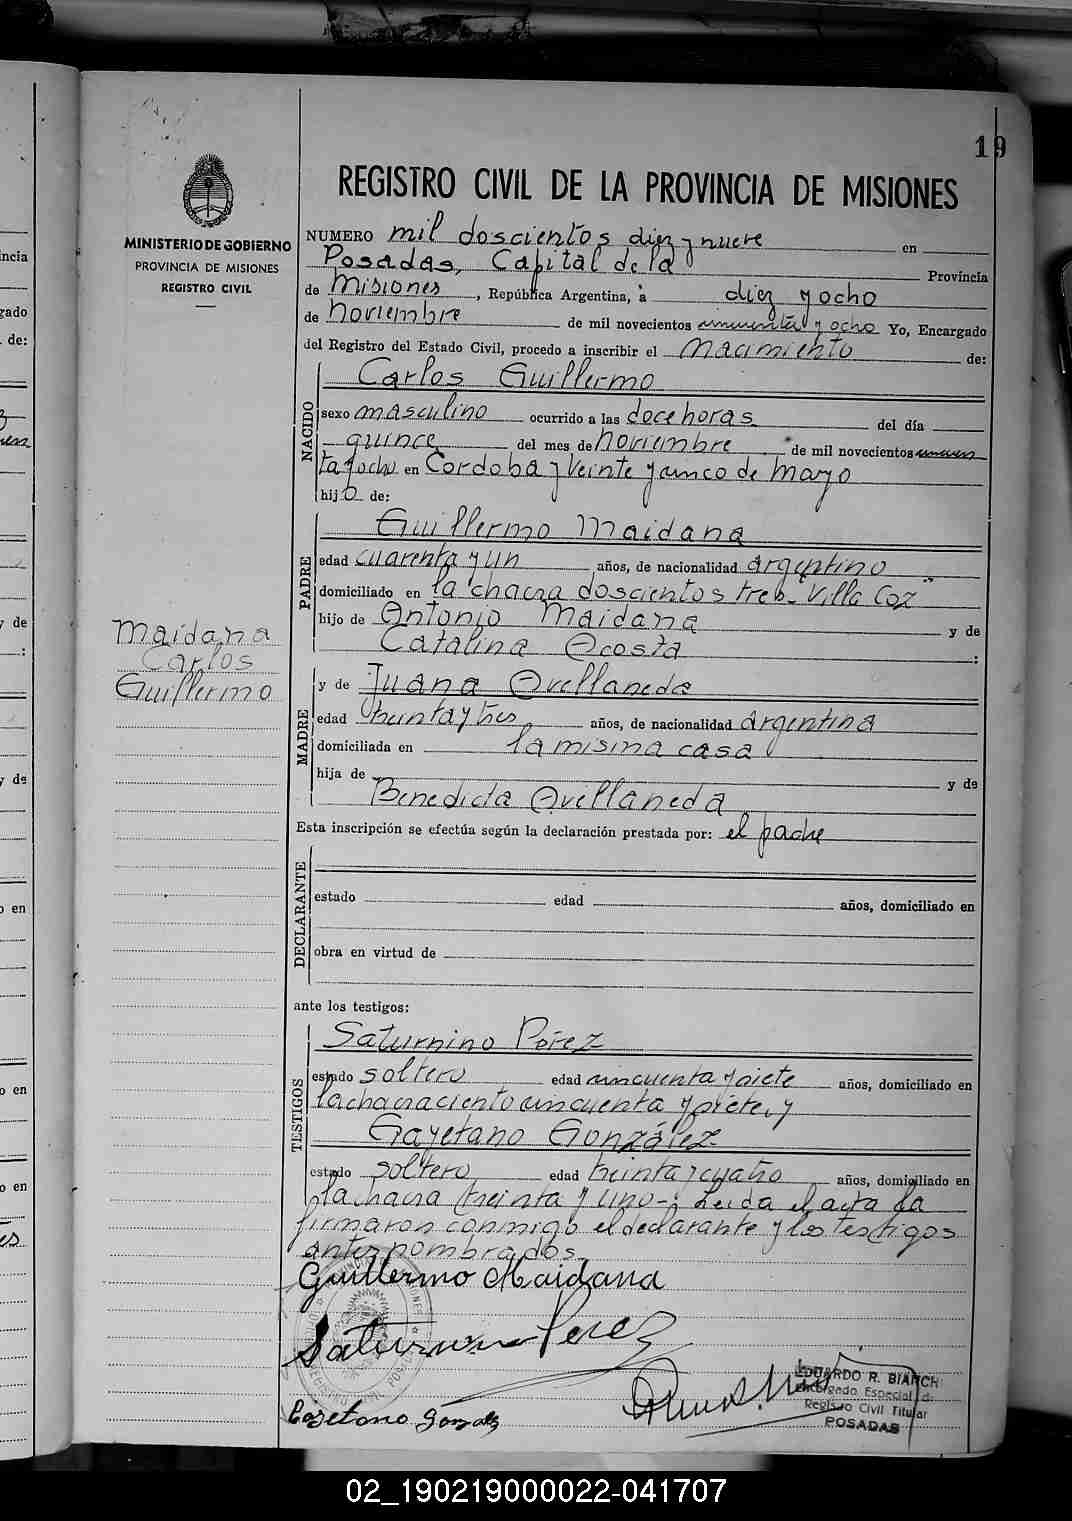 19
REGISTRO CIVIL DE LA PROVINCIA DE MISIONES
MINISTERIO DE GOBIERNO
PROVINCIA DE MISIONES
REGISTRO CIVIL
NUMERO mil doscientos diez y nueve en
Posadas, Capital de la Provincia
de Misiones, República Argentina, a diez y ocho
de Noviembre de mil novecientos cincuenta y ocho Yo, Encargado
del Registro del Estado Civil, procedo a inscribir el Nacimiento de:
NACIDO
Carlos Guillermo
sexo masculino ocurrido a las doce horas del día
quince del mes de Noviembre de mil novecientos cincuen
ta y ocho en Cordoba y Veinte y cinco de Mayo
hijo de:
PADRE
Guillermo Maidana
edad cuarenta y un años, de nacionalidad argentino
domiciliado en la chacra doscientos tres-"Villa Coz"
hijo de Antonio Maidana y de
Catalina Acosta :
Maidana
Carlos
Guillermo
MADRE
y de Juana Avellaneda
edad treinta y tres años, de nacionalidad argentina
domiciliada en la misma casa
hija de y de
Benedicta Avellaneda
Esta inscripción se efectúa según la declaración prestada por: el padre
DECLARANTE
estado edad años, domiciliado en
obra en virtud de
ante los testigos:
TESTIGOS
Saturnino Pérez
estado soltero edad cincuenta y siete años, domiciliado en
la chacra ciento cincuenta y siete, y
Cayetano González
estado soltero edad treinta y cuatro años, domiciliado en
la chacra treinta y uno-; Leida el acta la
firmaron conmigo el declarante y los testigos
antes nombrados.
Guillermo Maidana
Saturnino Perez
Cayetano Gonzalez
EDUARDO R. BIANCHI
Encargado Especial de
Registro Civil Titular
POSADAS
incia
gado
de:
y de
:
y de
o en
o en
o en
02_190219000022-041707